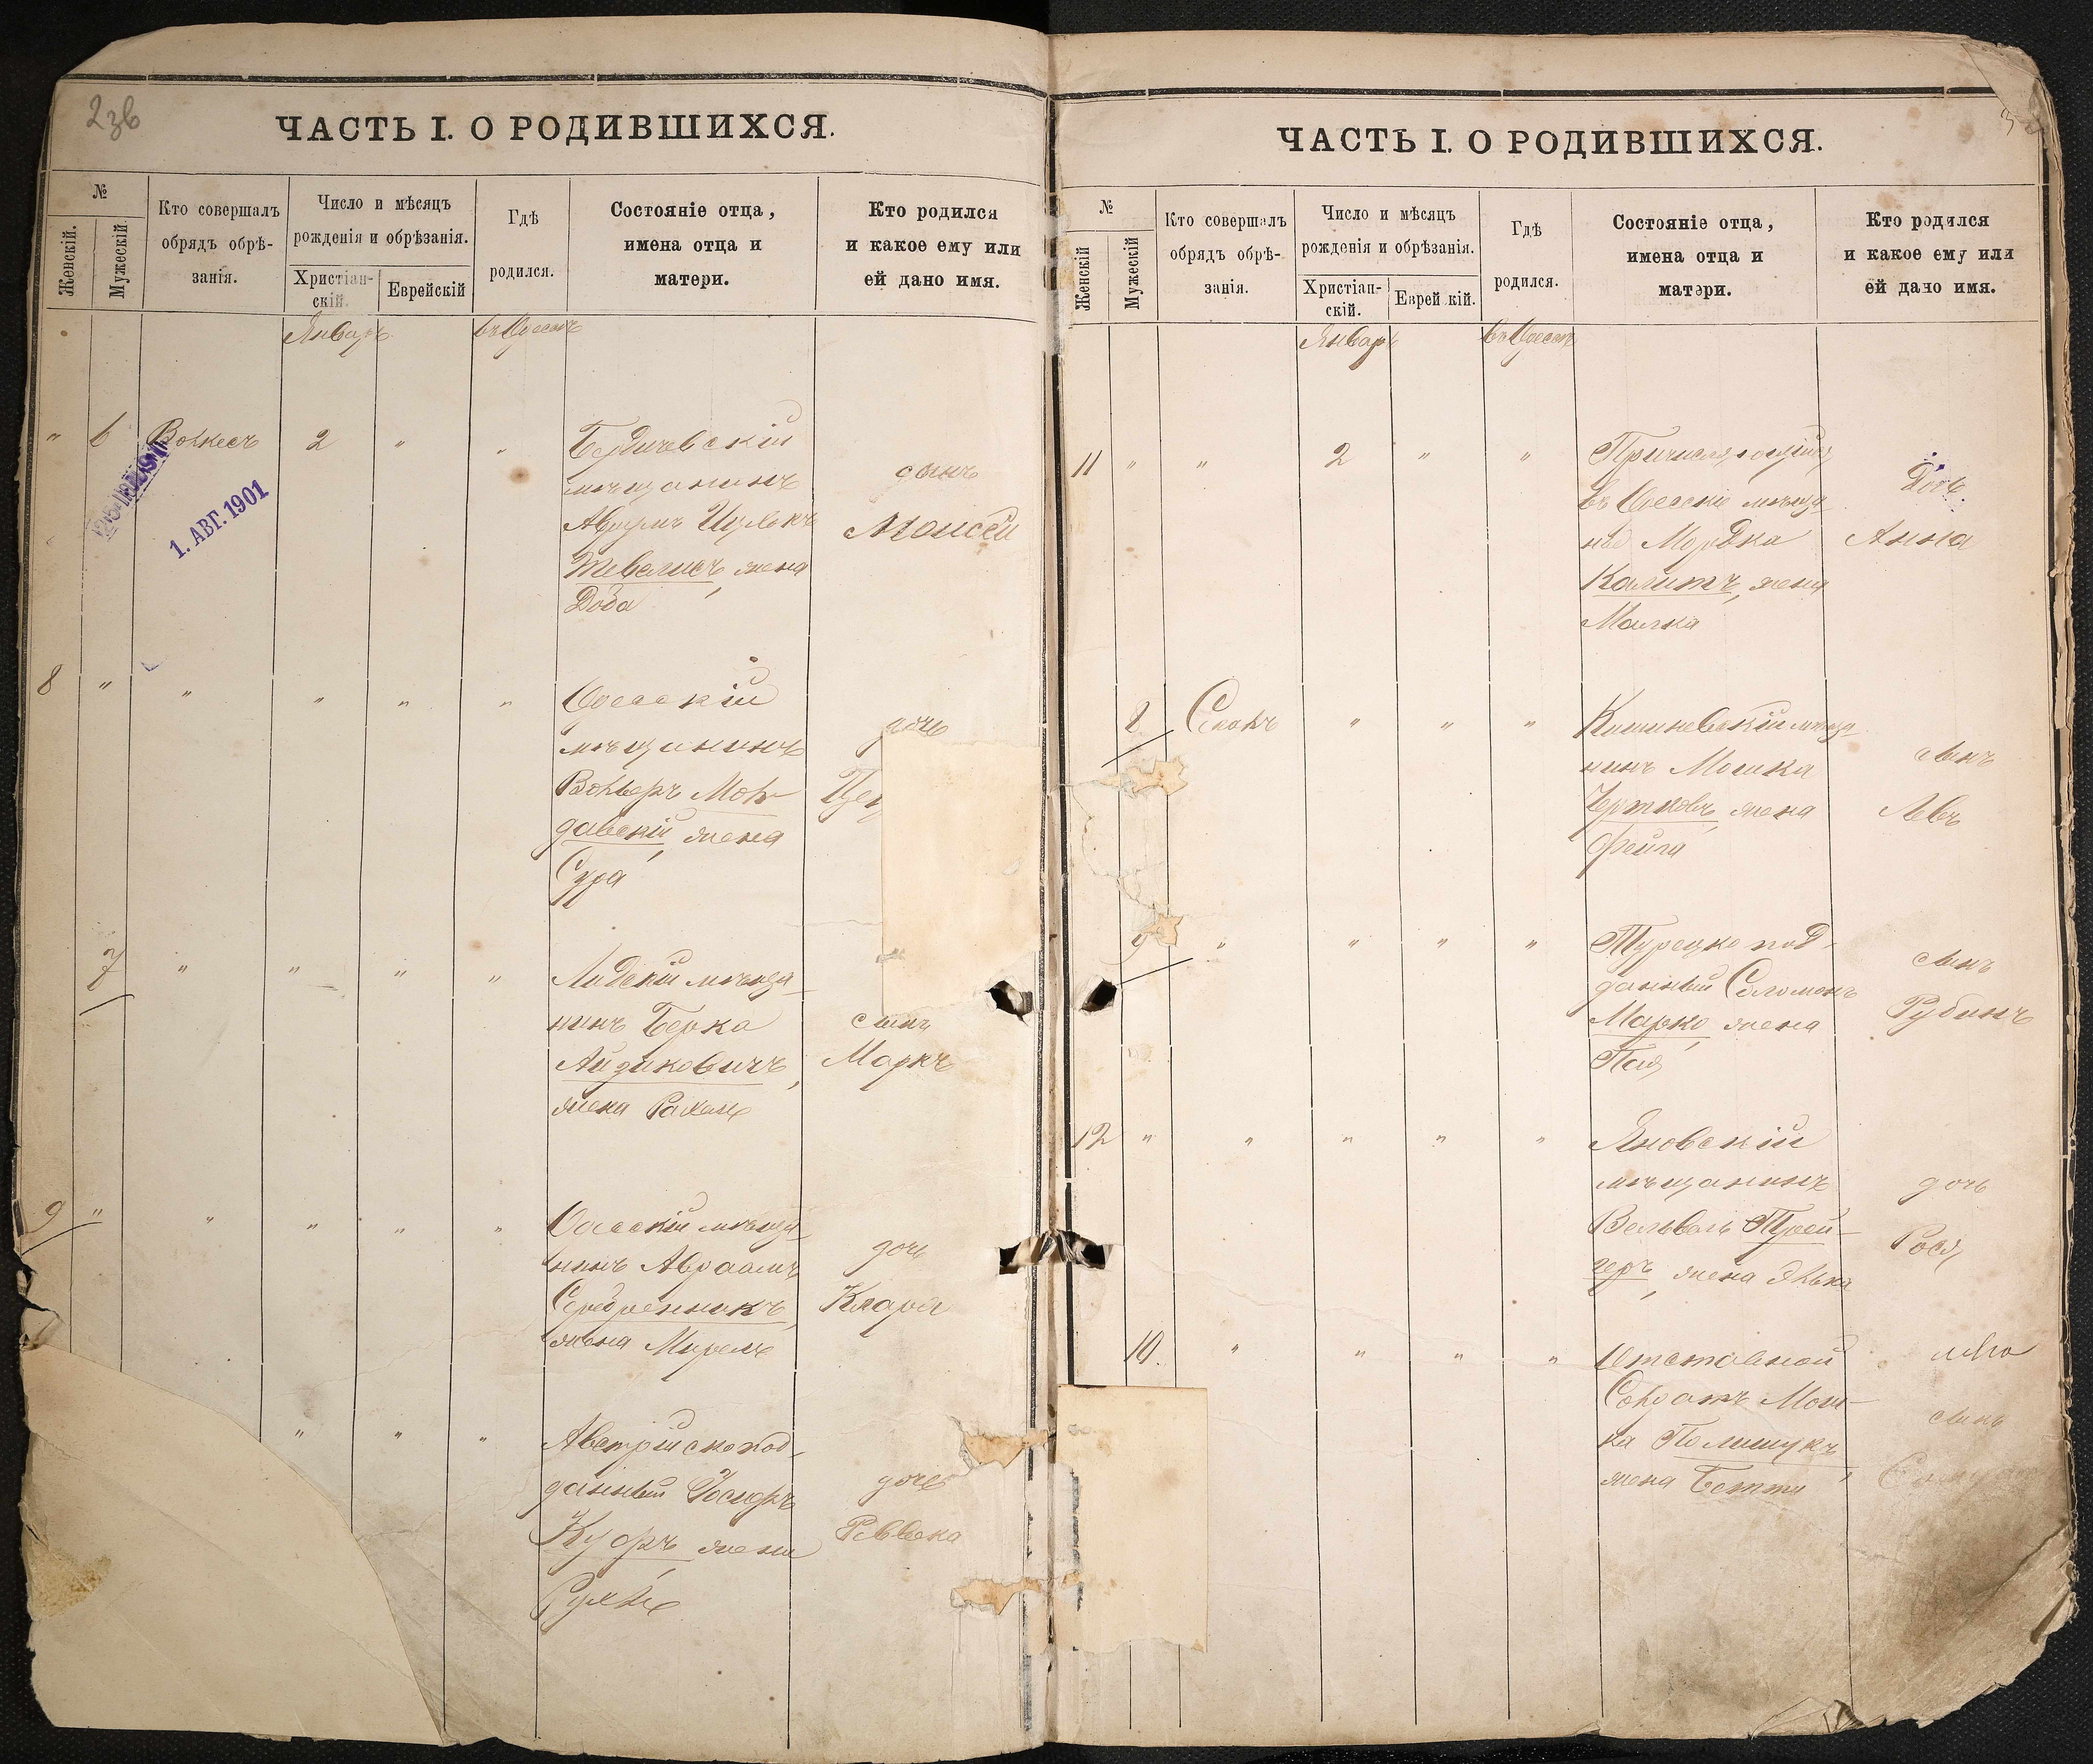 2зв
ЧАСТЬ I. О РОДИВШИХСЯ.
№
Женскій.
Мужескій.
Кто совершалъ
обрядъ обрѣ-
занія.
Число и мѣсяцъ
рожденія и обрѣзанія.
Христіан-
скій.
Еврейскій
Гдѣ
родился.
Состояніе отца,
имена отца и
матери.
Кто родился
и какое ему или
ей дано имя.
Январь въ Одессѣ
" 6 2 " "
1. АВГ. 1901
Бердичевскій
мѣщанинъ
жена
сынъ
Моисей
8 " " " " "
Одесскій
мѣщанинъ
Вольфъ Мол-
давскій, жена
Сура
дочь
7 " " " "
Лидскій мѣща-
нинъ Берка
Айзиковичъ,
жена Рахель
сынъ
Маркъ
9 " " " " "
Одесскій мѣща-
нинъ Авраамъ
Серебренникъ,
жена Мирель
дочь
Клара
" " "
Австрійскопод-
данный Іосифъ
жена
дочь
Ревекка
ЧАСТЬ I. О РОДИВШИХСЯ.
№
Женскій
Мужескій
Кто совершалъ
обрядъ обрѣ-
занія.
Число и мѣсяцъ
рожденія и обрѣзанія.
Христіан-
скій.
Еврей кій.
Гдѣ
родился.
Состояніе отца,
имена отца и
матери.
Кто родился
и какое ему или
ей дано имя.
Январь въ Одессѣ
11 " " 2 " "
въ Одесскіе мѣща
не Мордка
Калитъ, жена
Малка
Дочь
Анна
8 " " "
Кишиневскій мѣща
нинъ Мошка
жена
Фейга
сынъ
Левъ
9 " " " "
Турецко под-
данный Соломонъ
Марко, жена
сынъ
Рубинъ
12 " " " " "
Яновскій
мѣщанинъ
Вельвель Трей-
геръ, жена Элька
дочь
Рося
10. " " " "
Отставной
Солдатъ Мош-
ка Полищукъ,
жена Бетти
сынъ